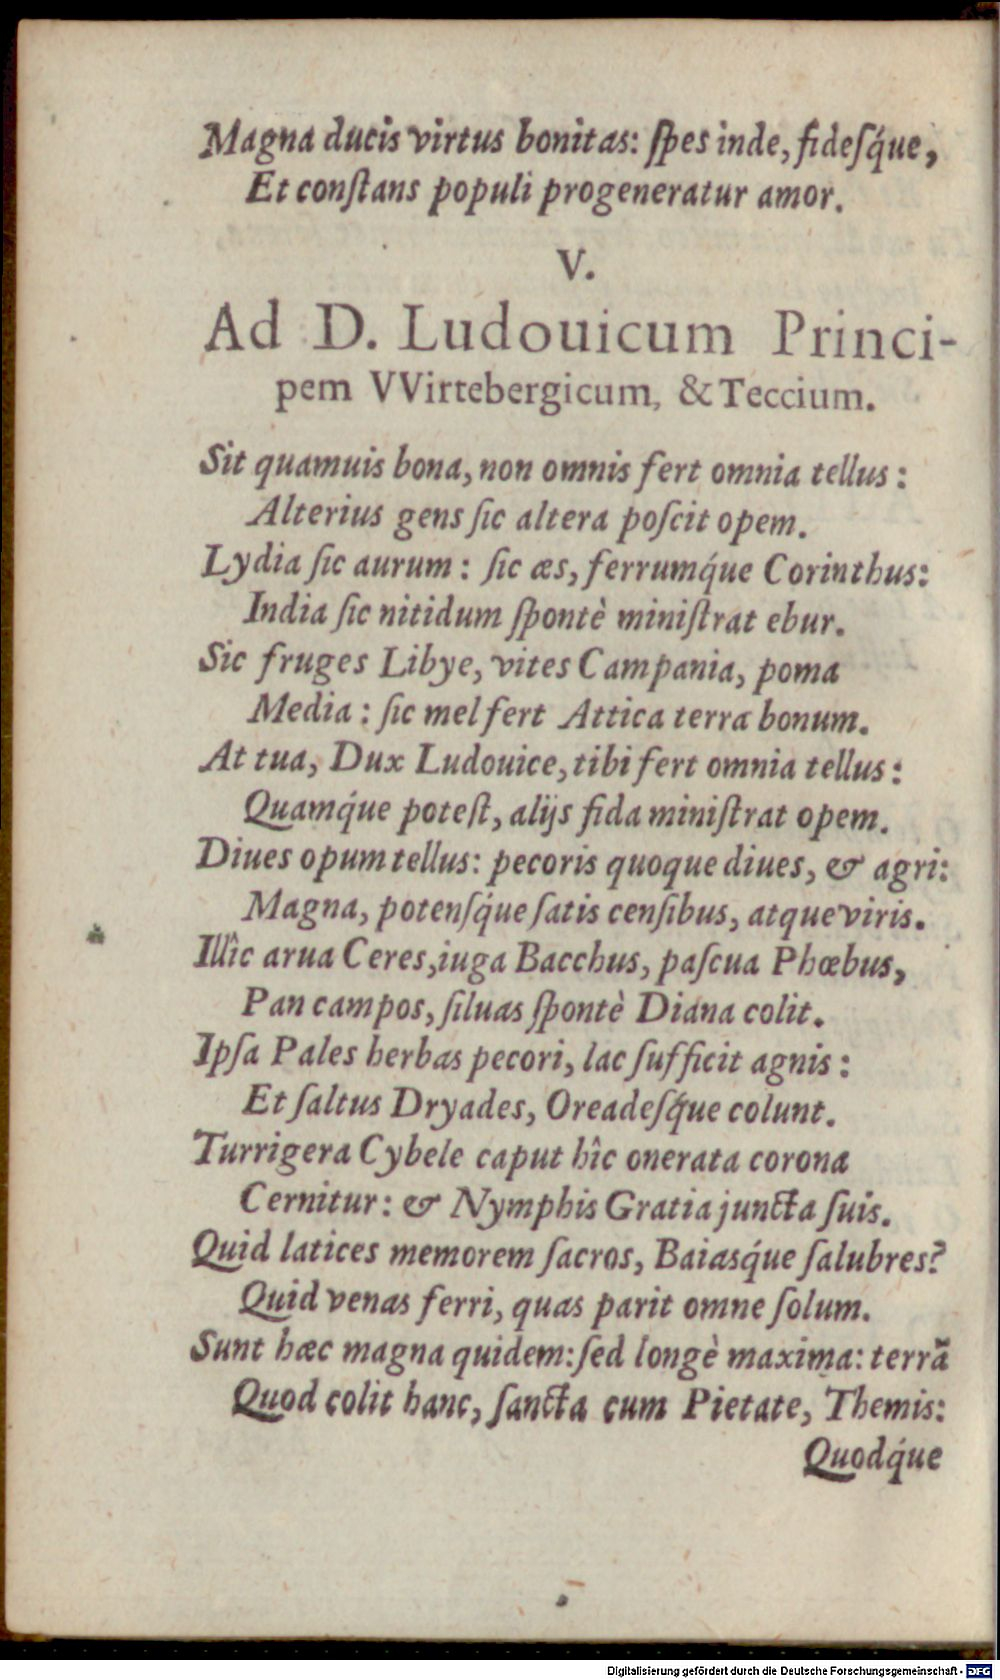 Magna ducis virtus bonitas: ſpes inde, fideſq́ue,
Et conſtans populi progeneratur amor.
V.
Ad D. Ludouicum Princi-
pem VVirtebergicum, & Teccium.
Sit quamuis bona, non omnis fert omnia tellus:
Alterius gens ſic altera poſcit opem.
Lydia ſic aurum: ſic æs, ferrumq́ue Corinthus:
India ſic nitidum ſpontè miniſtrat ebur.
Sic fruges Libye, vites Campania, poma
Media: ſic mel fert Attica terra bonum.
At tua, Dux Ludouice, tibi fert omnia tellus:
Quamq́ue poteſt, alijs fida miniſtrat opem.
Diues opum tellus: pecoris quoque diues, & agri:
Magna, potenſq́ue ſatis cenſibus, atque viris.
Illîc arua Ceres, iuga Bacchus, paſcua Phœbus,
Pan campos, ſiluas ſpontè Diana colit.
Ipſa Pales herbas pecori, lac ſufficit agnis:
Et ſaltus Dryades, Oreadeſq́ue colunt.
Turrigera Cybele caput hîc onerata corona
Cernitur: & Nymphis Gratia juncta ſuis.
Quid latices memorem ſacros, Baiasq́ue ſalubres?
Quid venas ferri, quas parit omne ſolum.
Sunt hæc magna quidem: ſed longè maxima: terrã
Quod colit hanc, ſancta cum Pietate, Themis:
Quodq́ue
Digitalisierung gefördert durch die Deutsche Forschungsgemeinschaft - DFG